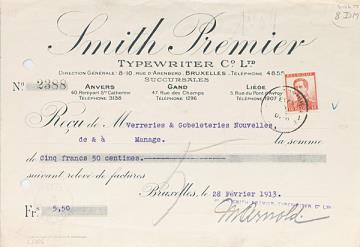 Smith Premier
TYPEWRITER Cº LTD
DIRECTION GÉNÉRALE: 8-10, RUE D'ARENBERG, BRUXELLES.-TÉLÉPHONE 4855
SUCCURSALES
Nº 2388
ANVERS GAND LIÈGE
40 Rempart Ste Catherine 47 Rue des Champs 5, Rue du Pont d'Avroy
TÉLÉPHONE 3138 TÉLÉPHONE 1296 TÉLÉPHONE 1907
Reçu de M verreries & Gobeleteries Nouvelles
de & à Manage. la somme
de Cinq francs 50 centimes.
suivant relevé de factures
Bruxelles, 28 Février 1913.
Fr. 5,50
SMITH PREMIER TYPEWRITER Co LTD